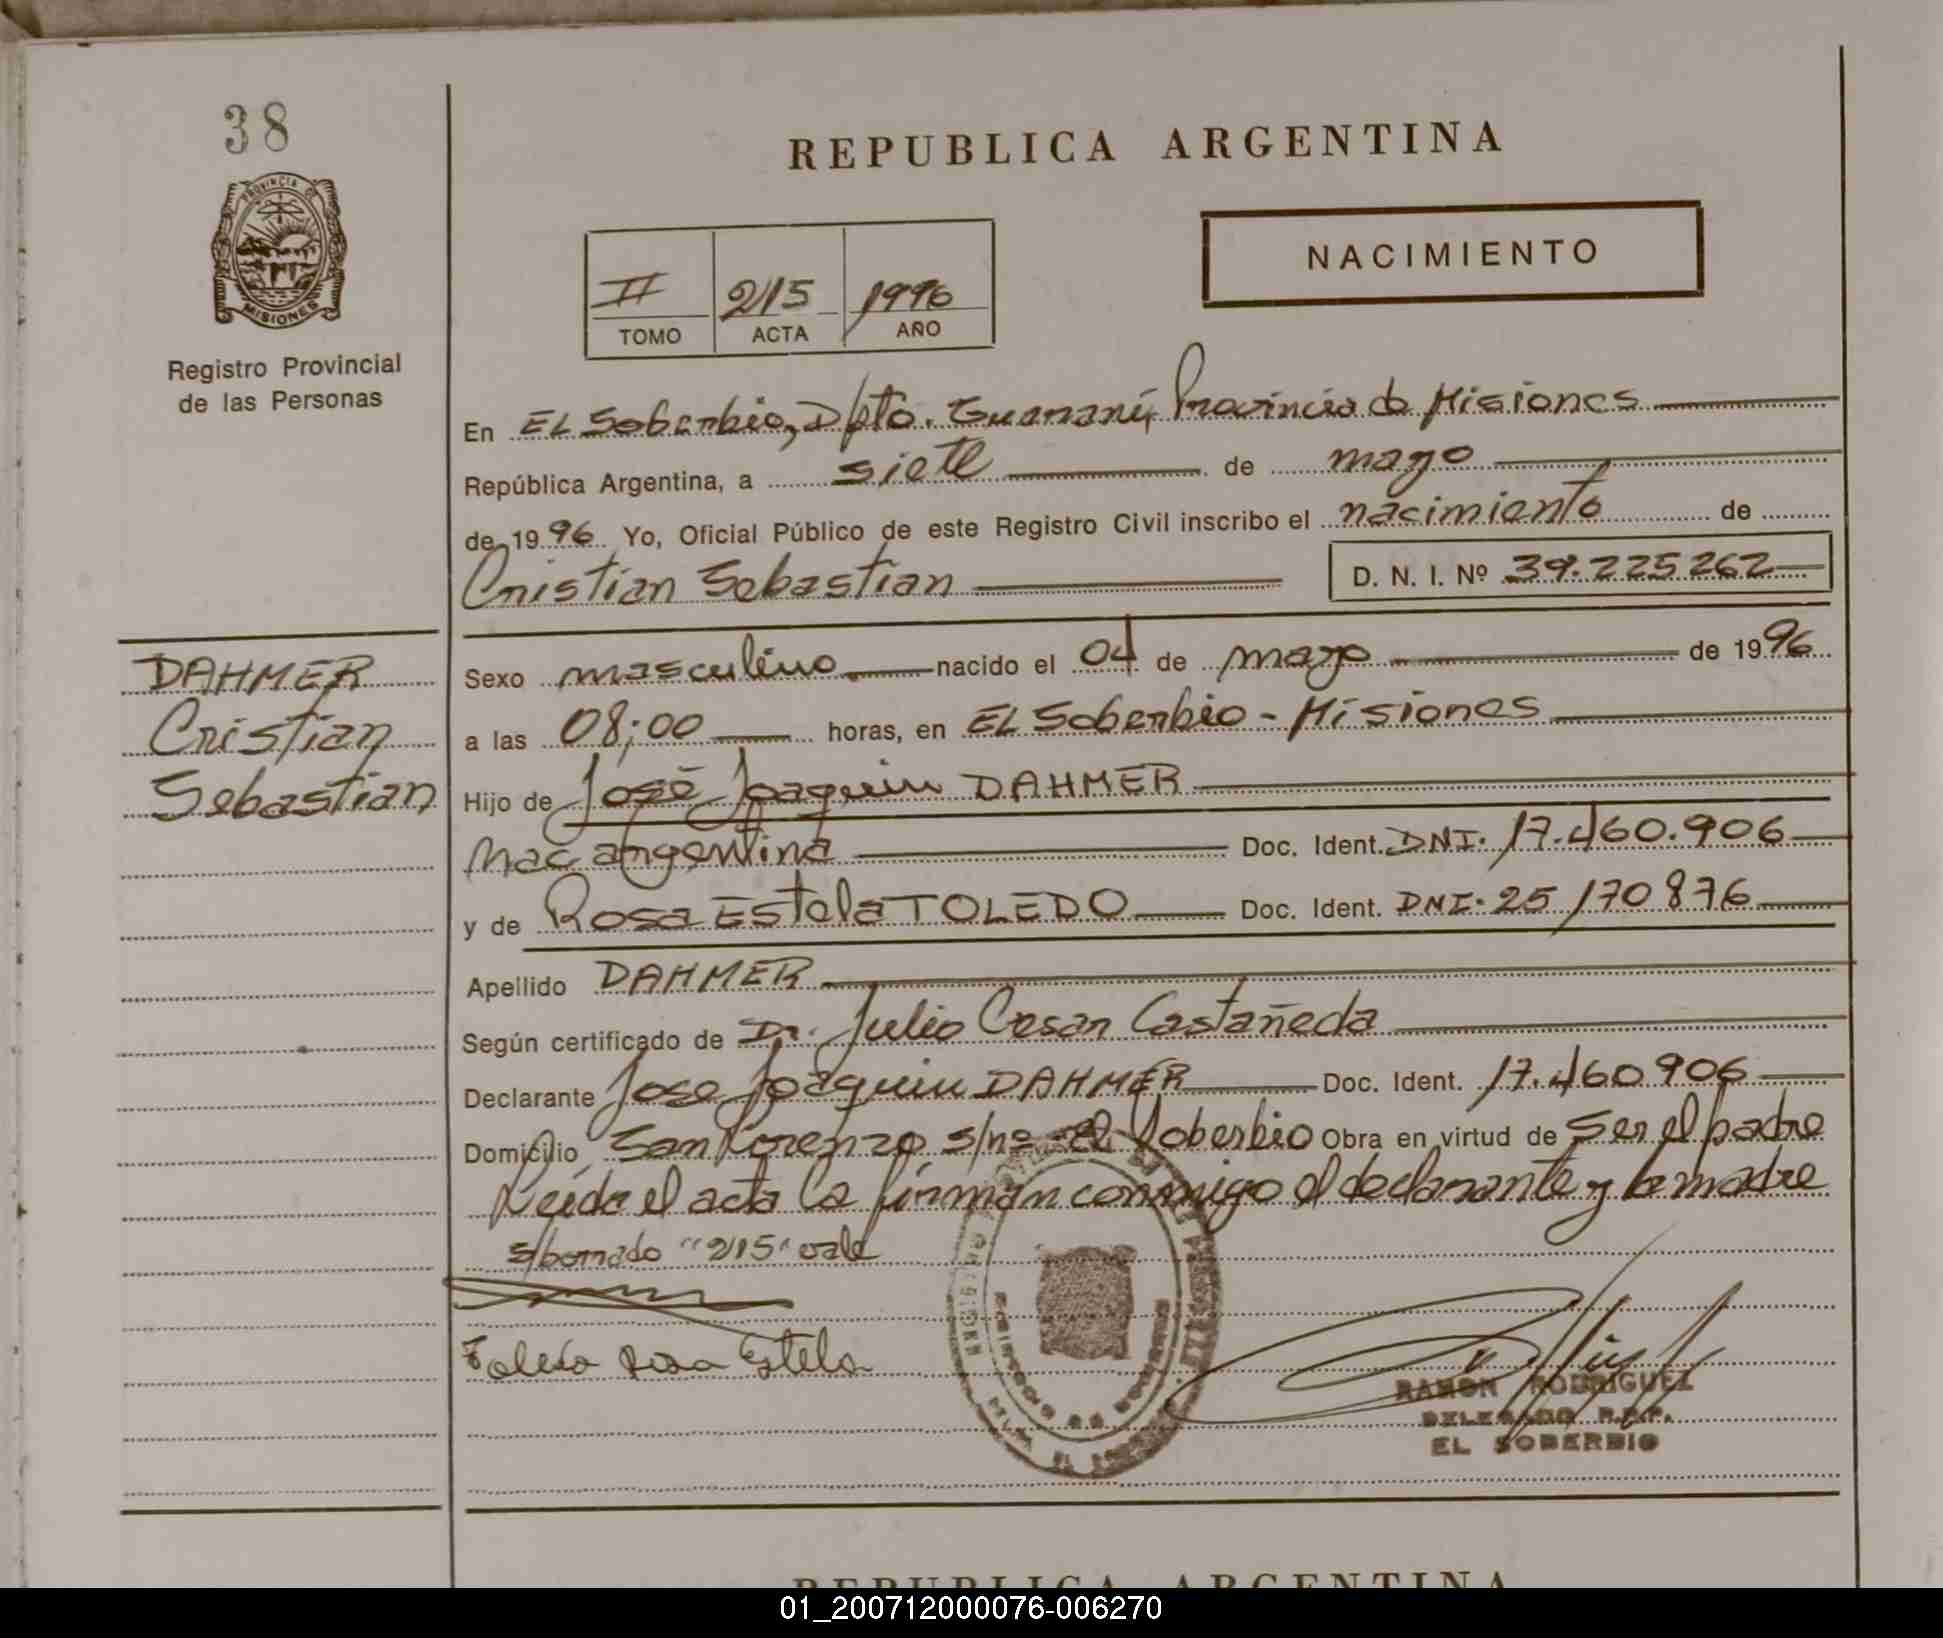 38
PROVINCIA DE
MISIONES
Registro Provincial
de las Personas
DAHMER
Cristian
Sebastian
REPUBLICA ARGENTINA
NACIMIENTO
II 215 1996
TOMO ACTA AÑO
En EL Soberbio, Dpto. Guaraní, Provincia de Misiones
República Argentina, a siete de mayo
de 1996 Yo, Oficial Público de este Registro Civil inscribo el nacimiento de
Cristian Sebastian D. N. I. Nº 39.225262
Sexo masculino nacido el 04 de mayo de 1996
a las 08;00 horas, en EL Soberbio - Misiones
Hijo de José Joaquin DAHMER
Nac argentina Doc. Ident. DNI. 17.460.906
y de Rosa Estela TOLEDO Doc. Ident. DNI. 25 170876
Apellido DAHMER
Según certificado de Dr. Julio Cesar Castañeda
Declarante Jose Joaquin DAHMER Doc. Ident. 17.460906
Domicilio San Lorenzo s/nº - El Soberbio Obra en virtud de Ser el padre
Leída el acta la firman conmigo el declarante y la madre
s/borrado "215" vale
Toledo Rosa Estela
RAMON RODRIGUEZ
DELEGADO R.P.P.
EL SOBERBIO
REPUBLICA ARGENTINA
01_200712000076-006270